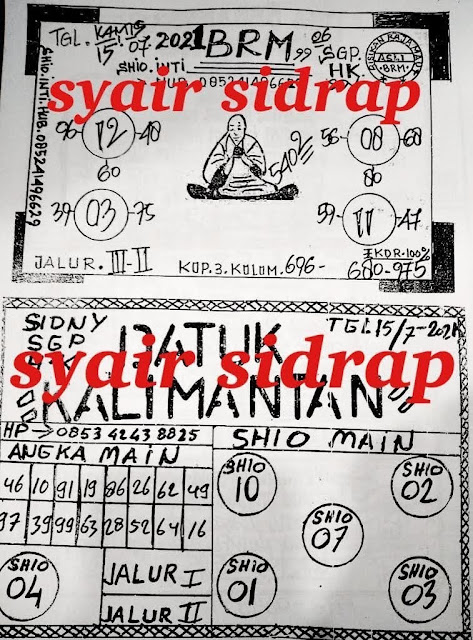 TGL. KAMIS
15/07 2021 BRM 99 06
SHIO.INTI SGP.
HK.
HUB. 085241496629
BISIKAN RAJA MAUT
ASLI
BRM
SHIO.INTI.HUB.085241496629
syair sidrap
96 12 40
60
56 08 68
80
5402
39 03 75
59 11 47
JALUR. III-II
KOP.3.KOLOM. 696-
680-975
EKOR.100%
SIDNY
SGP
DATUK
TGL.15/7-2021
syair sidrap
KALIMANTAN
HP → 0853 4243 8825
ANGKA MAIN
46 10 91 19 86 26 62 49
97 39 99 63 28 52 64 16
SHIO
04
JALUR I
JALUR II
SHIO MAIN
SHIO
10
SHIO
02
SHIO
07
SHIO
01
SHIO
03